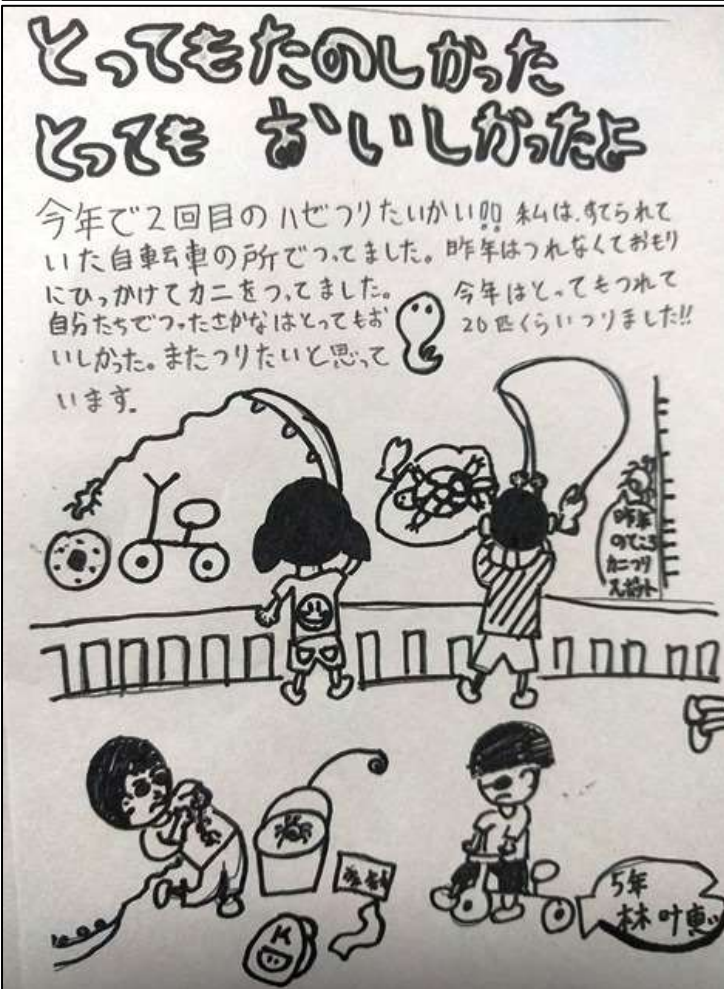 とってもたのしかった
とっても おいしかったよ
今年で2回目のハゼつりたいかい!! 私は、すてられて
いた自転車の所でつってました。昨年はつれなくておもり
にひっかけてカニをつってました。
自分たちでつったさかなはとってもお
いしかった。またつりたいと思って
います。
今年はとってもつれて
20匹くらいつりました!!
昨年
のてころ
カニつり
スポット
5年